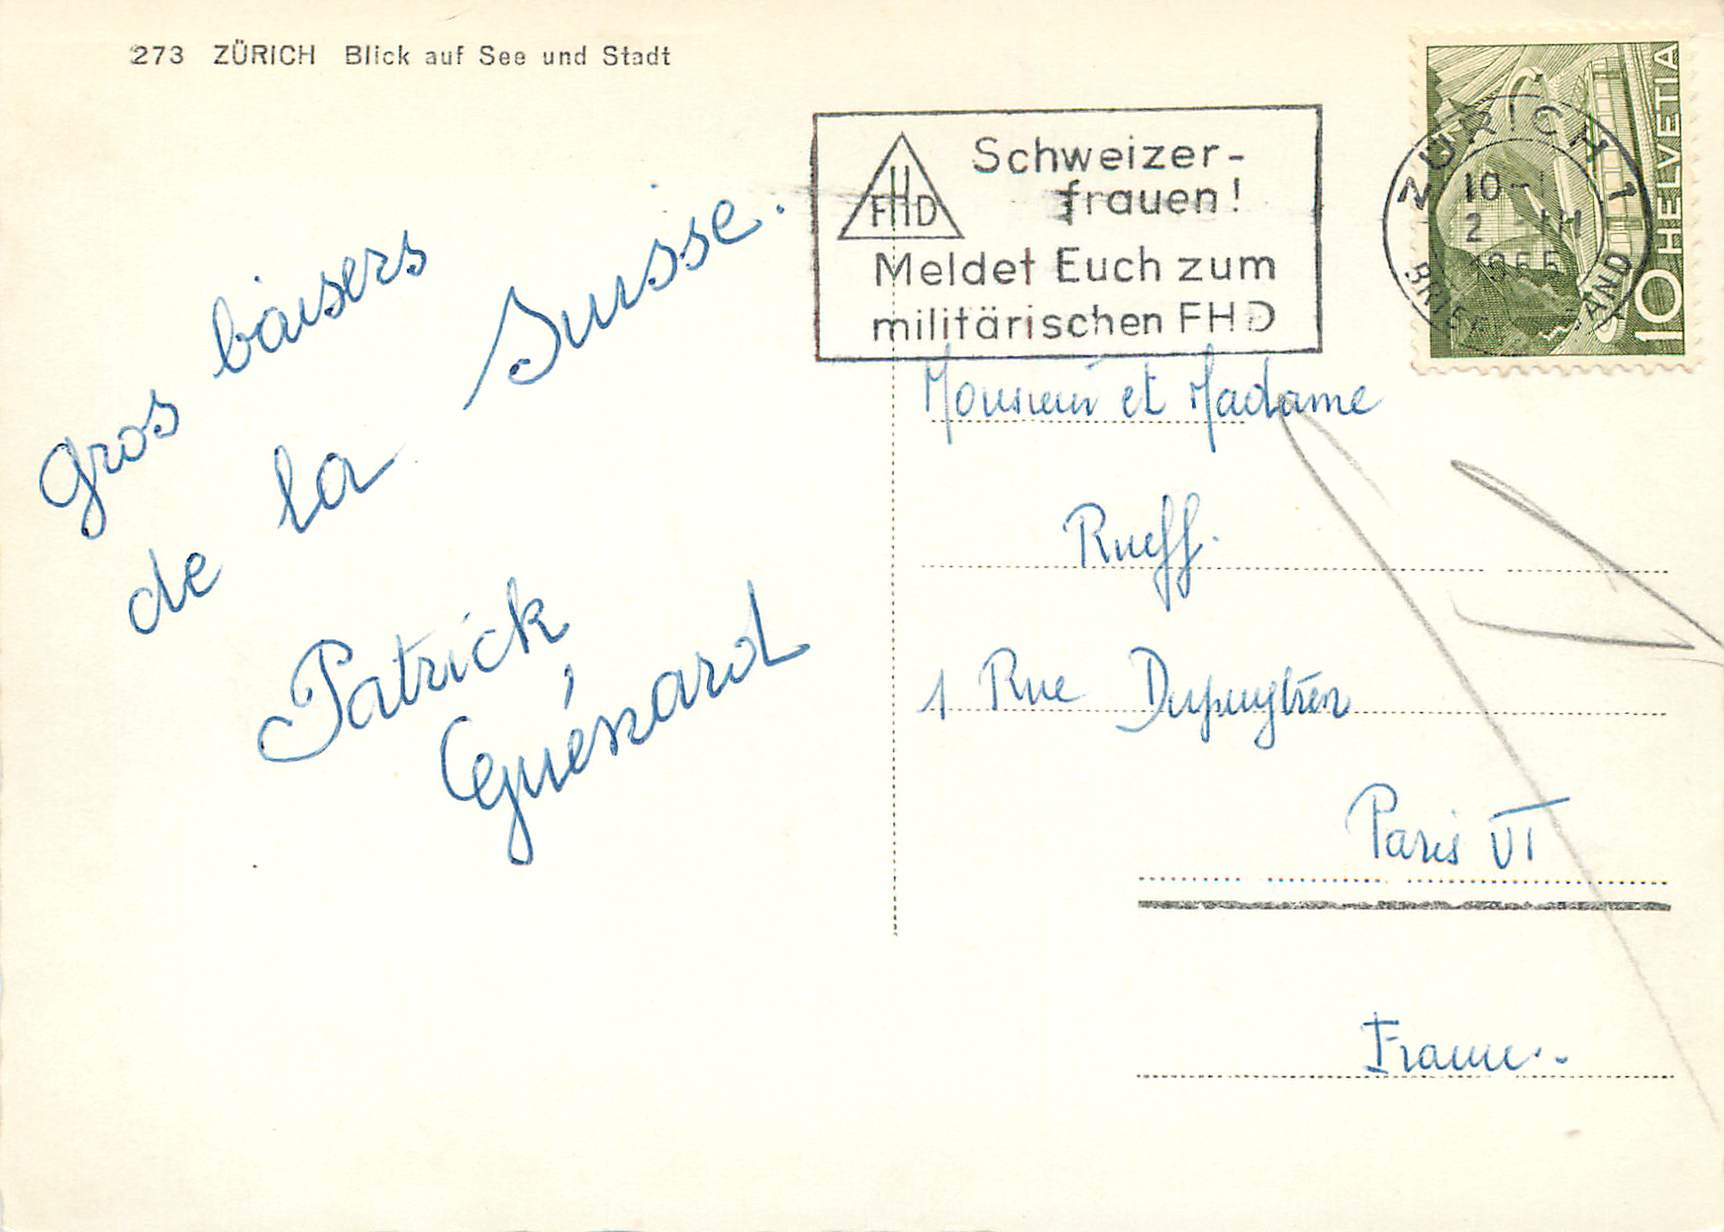 273 ZÜRICH Blick auf See und Stadt
FHD
Schweizer-
frauen!
Meldet Euch zum
militärischen FHD
ZÜRICH 1
10-1
2 III
1955
HELVETIA
10
Gros baisers
de la Suisse.
Patrick
Guénard
Monsieur et Madame
Rueff.
1 Rue Dupuytren
Paris VI
France.